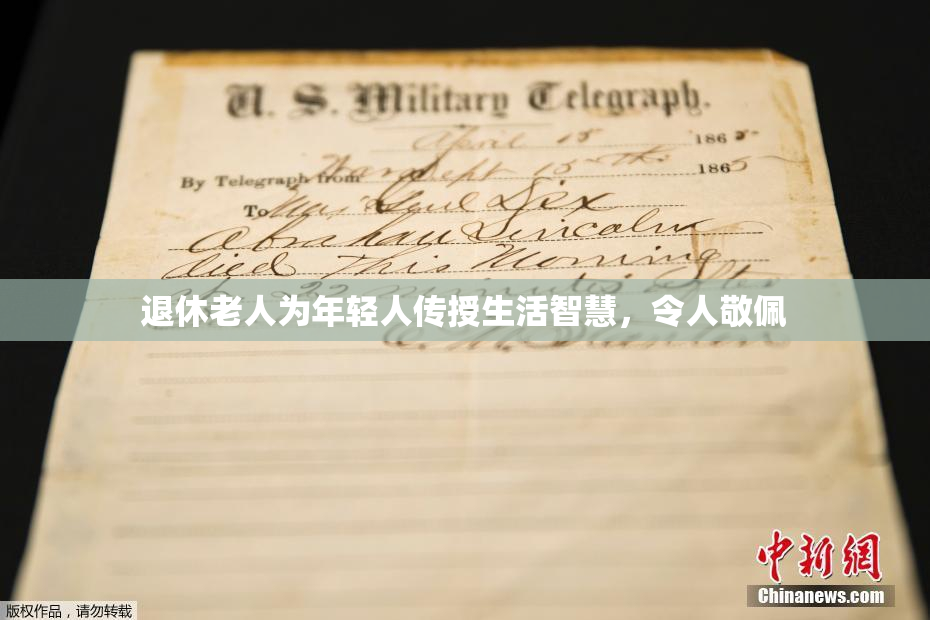 U. S. Military Telegraph.
April 15 1865
By Telegraph from War Dept 15th 1865
To Maj Genl Dix
Abraham Lincoln
died This Morning
22 minutes after
退休老人为年轻人传授生活智慧，令人敬佩
E. M. Stanton
中新网
Chinanews.com
版权作品，请勿转载